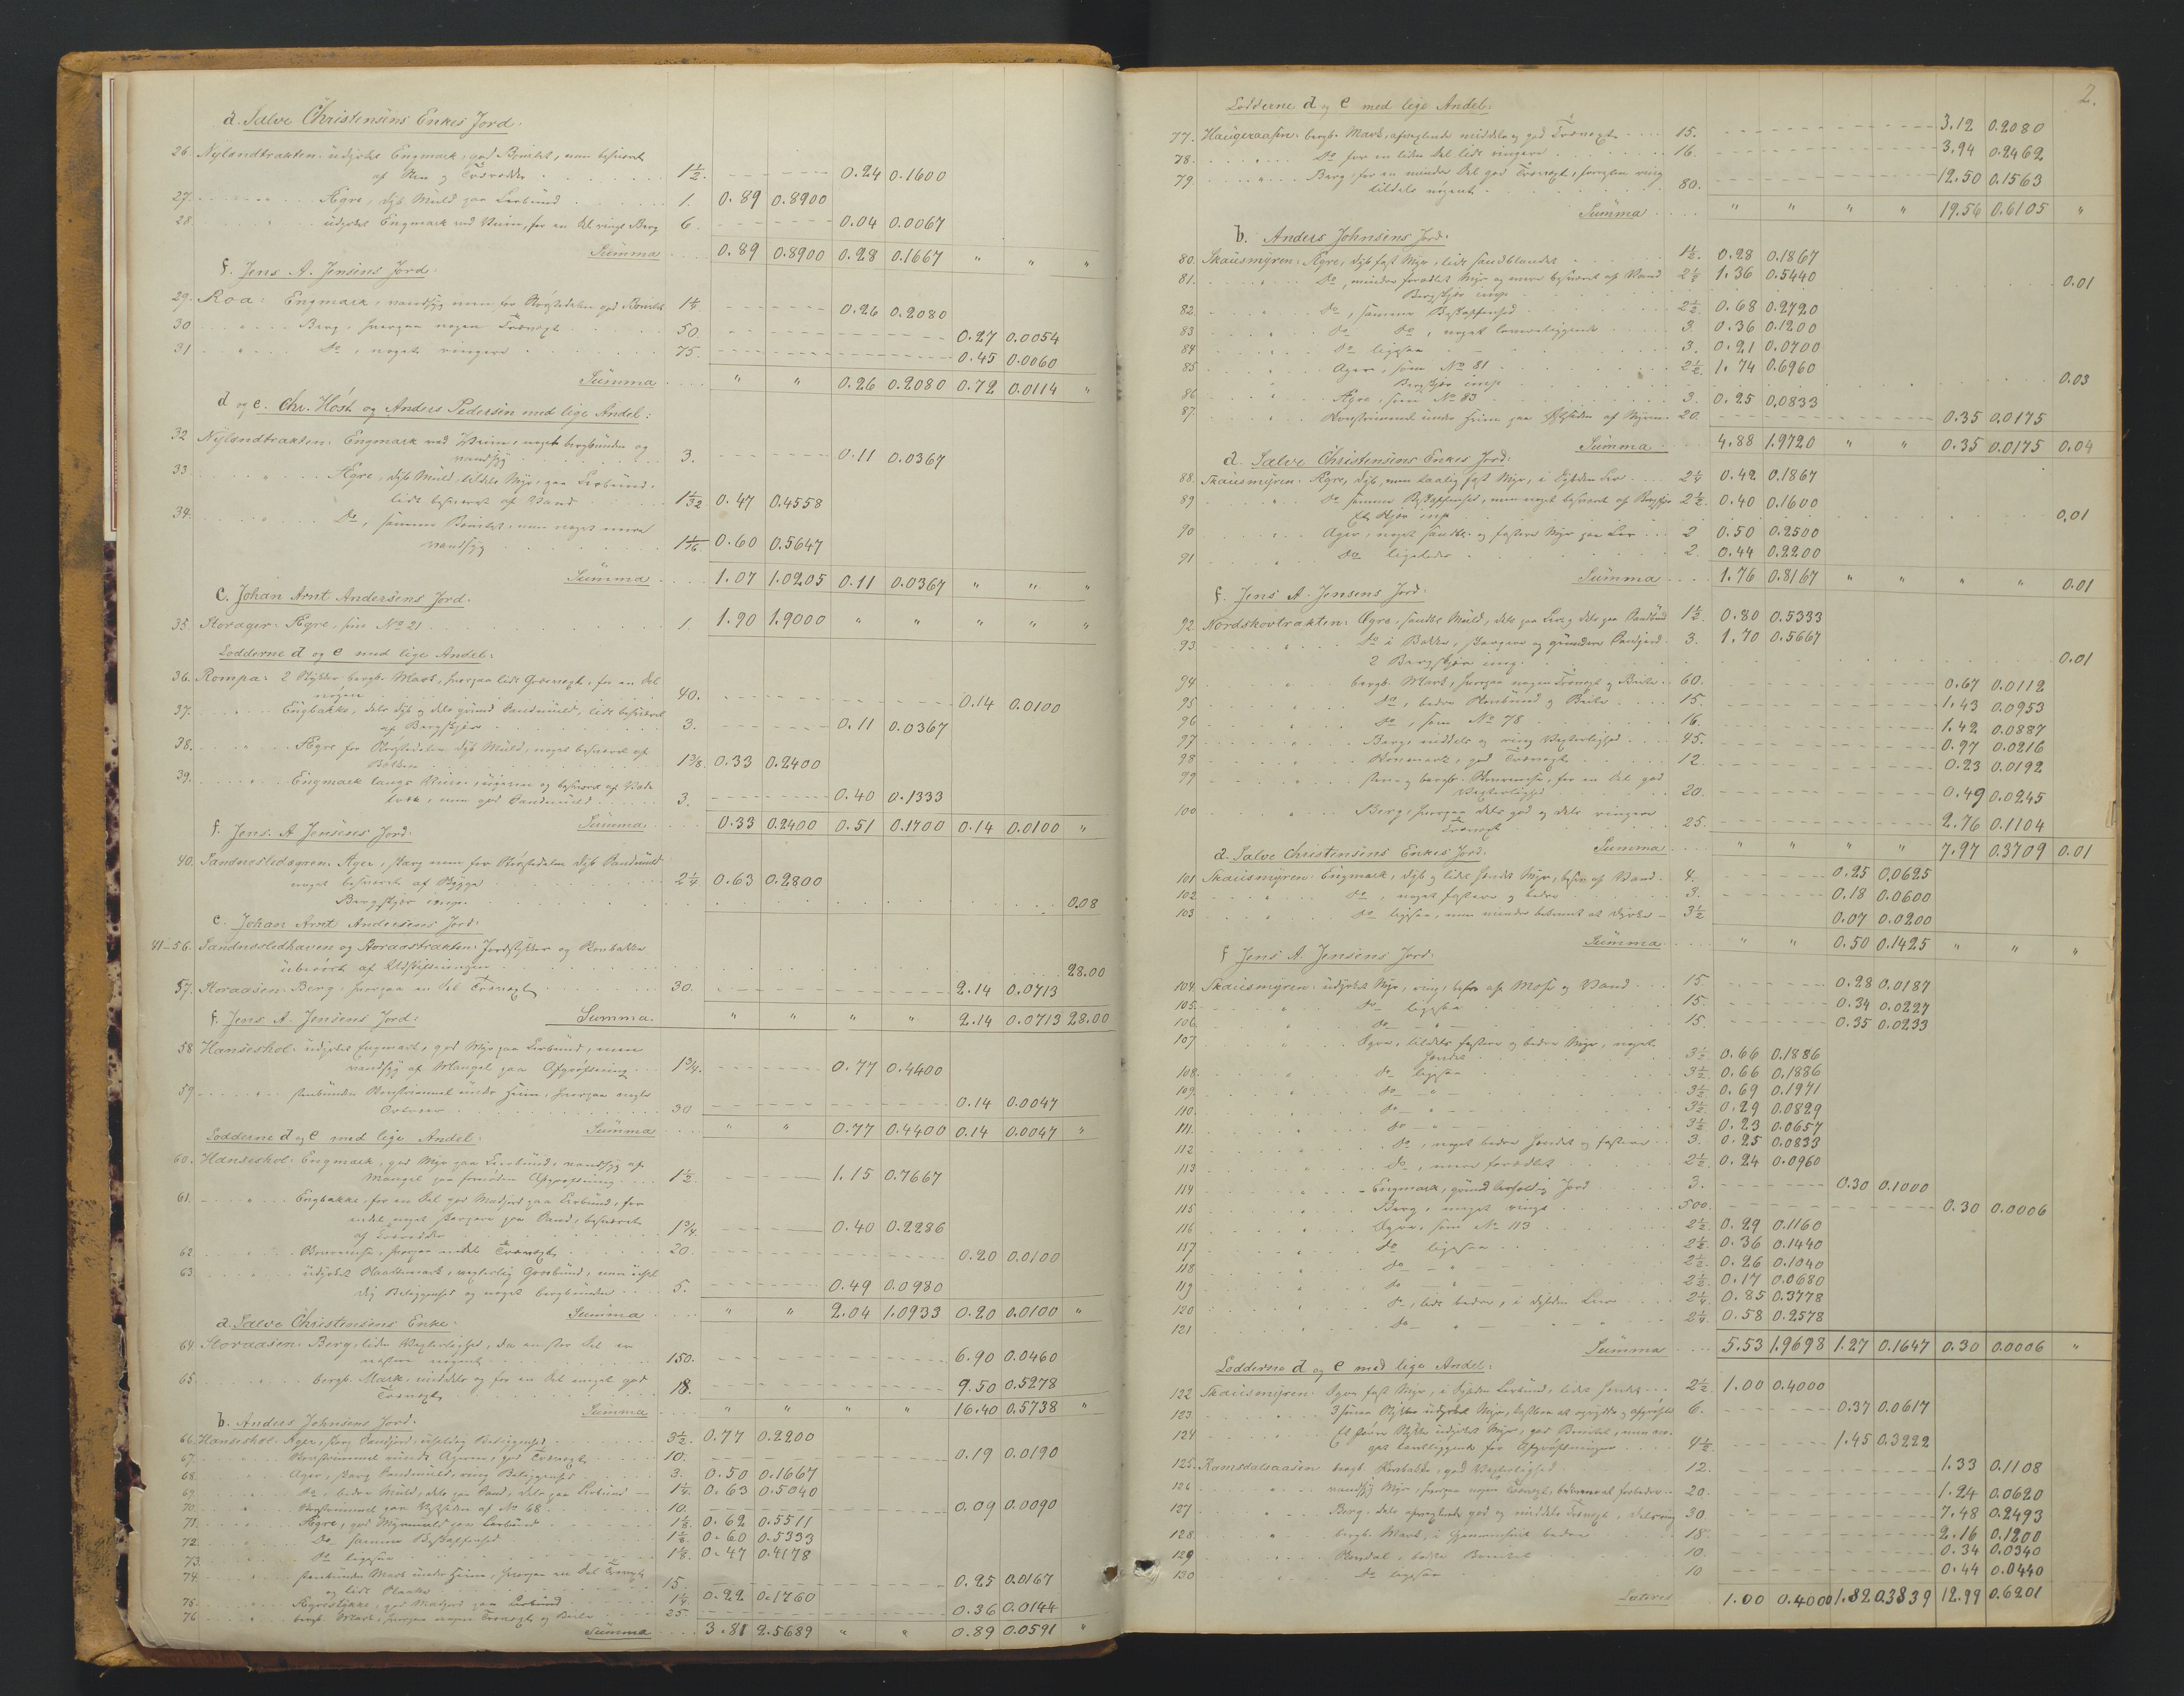 d. Salve Christensens Enkes Jord.
26. Nylandtrakten: udyrket Engmark, god Bonitet, men besværet
af Sten og Trærødder 1½. 0.24 0.1600
27. " Agre, dyb Muld paa Leerbund 1. 0.89 0.8900
28. " udyrket Engmark ved Veien, for en Del ringe Berg 6. 0.04 0.0067
Summa 0.89 0.8900 0.28 0.1667 " " "
f. Jens A. Jensens Jord.
29. Roa: Engmark, vandsyg men for Størstedelen god Bonitet 1¼ 0.26 0.2080
30 " Berg, hvorpaa nogen Trævext 50. 0.27 0.0054
31 " Do, noget ringere 75. 0.45 0.0060
Summa " " 0.26 0.2080 0.72 0.0114 "
d og e. Chr. Høst og Anders Pedersen med lige Andel:
32 Nylandtrakten: Engmark ved Veien, noget bergbunden og
vandsyg 3. 0.11 0.0367
33. " Agre, dyb Muld, tildels Myr, paa Leerbund,
lidt besværet af Vand 1 1/32 0.47 0.4558
34. " Do, samme Bonitet, men noget mere
vandsyg 1 1/16 0.60 0.5647
Summa 1.07 1.0205 0.11 0.0367 " " "
c. Johan Arnt Andersens Jord.
35. Storager: Agre, som No 21 1 1.90 1.9000 " " " " "
Lodderne d og e med lige Andel:
36. Rompa: 2 Stykker bergb. Mark, hvorpaa lidt Græsvext, for en Del
nøgen 40. 0.14 0.0100
37. " Engbakke, dels dyb og dels grund Sandmuld, lidt besværet
af Bergskjær 3. 0.11 0.0367
38. " Agre for Størstedelen dyb Muld, noget besværet af
Bakken 1⅜. 0.33 0.2400
39. " Engmark langs Veien, ujevn og besværet af
men god Sandmuld 3. 0.40 0.1333
Summa 0.33 0.2400 0.51 0.1700 0.14 0.0100 "
f. Jens. A Jensens Jord:
40. Ager, skarp men for Størstedelen dyb Sandmuld
noget besværet af Skygge 2¼ 0.63 0.2800
Bergskjær imp. 0.08
c. Johan Arnt Andersens Jord:
41-56. og Storaastrakten: Jordstykker og
uberørt af Udskiftningen 28.00
57. Storaasen: Berg, hvorpaa en Del Trævext 30. 2.14 0.0713
f. Jens A. Jensens Jord: Summa. " " " " 2.14 0.0713 28.00
58 Hanseshol: udyrket Engmark, god Myr paa Leerbund, men
vandsyg af Mangel paa Afgrøftning 1¾. 0.77 0.4400
59 " stenbunden under Heien, hvorpaa
30 0.14 0.0047
Lodderne d og e med lige Andel: Summa " " 0.77 0.4400 0.14 0.0047 "
60. Hanseshol: Engmark, god Myr paa Leerbund, vandsyg af
Mangel paa fornøden Afgrøftning 1½ 1.15 0.7667
61. " Engbakke, for en Del god Madjord paa Leerbund, for
endel noget skarpere paa Sand, besværet
af Trærødder 1¾. 0.40 0.2286
62. " hvorpaa endel Trævext 20. 0.20 0.0100
63. " udyrket
Beliggenhed og noget bergbunden 5. 0.49 0.0980
Summa " " 2.04 1.0933 0.20 0.0100 "
d. Salve Christensens Enke:
64. Storaasen: Berg, liden Vexterlighed, da en stor Del er
næsten nøgent 150. 6.90 0.0460
65. " bergb. Mark, middels og for en Del meget god
Trævext 18. 9.50 0.5278
Summa " " " " 16.40 0.5738 "
b. Anders Johnsens Jord:
66. Hanseshol: Ager, skarp Sandjord, uheldig Beliggenhed 3½. 0.77 0.2200
67. " under Ageren, god Trævext 10. 0.19 0.0190
68. " Ager, skarp Sandmuld, ring Beliggenhed 3. 0.50 0.1667
69. " Do, bedre Muld, dels paa Sand, dels paa Leerbund 1¼. 0.63 0.5040
70. " paa af No 68. 10. 0.09 0.0090
71. " Agre, god Myrmuld paa Leerbund 1⅛. 0.62 0.5511
72. " Do samme Beskaffenhed 1⅛. 0.60 0.5333
73. " Do ligesaa 1⅛. 0.47 0.4178
74. " stenbunden Mark under Heien, hvorpaa en Del Trævext
og lidt 15. 0.25 0.0167
75. " Agerstykke, god Madjord paa Leerbund 1¼. 0.22 0.1760
76 " bergb. Mark, hvorpaa nogen Trævext og Beite 25 0.36 0.0144
Summa 3.81 2.5689 " " 0.89 0.0591 "
2.
Lodderne d og e med lige Andel:
77. Haugeraasen: bergb. Mark, afvexlende middels og god Trævext 15. 3.12 0.2080
78. " Do for en liden Del lidt ringere 16. 3.94 0.2462
79. " Berg, for en mindre Del god Trævext, forresten ring
tildels nøgent 80. 12.50 0.1563
Summa " " " " 19.56 0.6105 "
b. Anders Johnsens Jord:
80. Skausmyren: Agre, dyb fast Myr, lidt sandblandet 1½. 0.28 0.1867
81. " Do, mindre forædlet Myr og mere besværet af Vand 2½ 1.36 0.5440
Bergskjær imp. 0.01
82. " Do, samme Beskaffenhed 2½ 0.68 0.2720
83 " Do Do, noget lavereliggende 3. 0.36 0.1200
84 " Do ligesaa 3. 0.21 0.0700
85 " Ager, som No 81 2½. 1.74 0.6960
Bergskjær imp. 0.03
86 " Agre, som No 83 3. 0.25 0.0833
87. " under Heien paa af Myren 20. 0.35 0.0175
Summa 4.88 1.9720 " " 0.35 0.0175 0.04
d. Salve Christensens Enkes Jord:
88. Skausmyren: Agre, dyb, men taalig fast Myr, i Dybden Leer 2¼ 0.42 0.1867
89 " Do samme Beskaffenhed, men noget besværet af 2½. 0.40 0.1600
Et Skjær imp. 0.01
90 " Ager, noget sandbl. og fastere Myr paa Leer 2 0.50 0.2500
91 " Do ligeledes 2. 0.44 0.2200
Summa 1.76 0.8167 " " " " 0.01
f. Jens A. Jensens Jord:
92 Nordskovtrakten: Agre, sandbl. Muld, dels paa Leer og dels paa Sandbund 1½. 0.80 0.5333
93 " Do i Bakke, skarpere og grundere Sandjord 3. 1.70 0.5667
2 Bergskjær imp. 0.01
94 " bergb. Mark, hvorpaa nogen Trævext og Beite 60. 0.67 0.0112
95 " Do, bedre og Beite 15. 1.43 0.0953
96 " Do, som No 78 16. 1.42 0.0887
97 " Berg, middels og ring Vexterlighed 45. 0.97 0.0216
98 " god Trævext 12. 0.23 0.0192
99 " sten og bergb. for en Del god
Vexterlighed 20. 0.49 0.0245
100 " Berg, hvorpaa dels god og dels ringere
Trævext 25. 2.76 0.1104
d. Salve Christensens Enkes Jord: Summa " " " " 7.97 0.3709 0.01
101 Skausmyren: Engmark, dyb og lidt sandet Myr, besv. af Vand 4. 0.25 0.0625
102 " Do, noget fastere og bedre 3. 0.18 0.0600
103 " Do ligesaa, men mindre bekvemt at dyrke 3½ 0.07 0.0200
Summa " " 0.50 0.1425 " " "
f Jens A. Jensens Jord:
104. Skausmyren: udyrket Myr, ring, besv. af Mose og Vand 15. 0.28 0.0187
105. " Do ligesaa 15. 0.34 0.0227
106. " Do " 15. 0.35 0.0233
107 " Agre, tildels fastere og bedre Myr, noget
sandet 3½ 0.66 0.1886
108. " Do ligesaa 3½ 0.66 0.1886
109. " Do " 3½ 0.69 0.1971
110. " Do " 3½. 0.29 0.0829
111. " Do " 3½ 0.23 0.0657
112 " Do, noget bedre sandet og fastere 3. 0.25 0.0833
113 " Do, mere forædlet 2½ 0.24 0.0960
114 " Engmark, grund Jord 3. 0.30 0.1000
115 " Berg, meget ringt 500. 0.30 0.0006
116 " Agre, som No 113 2½ 0.29 0.1160
117 " Do ligesaa 2½ 0.36 0.1440
118 " Do " 2½ 0.26 0.1040
119 " Do " 2½ 0.17 0.0680
120 " Do, lidt bedre, i Dybden Leer 2¼ 0.85 0.3778
121 " Do " 2¼ 0.58 0.2578
Summa 5.53 1.9698 1.27 0.1647 0.30 0.0006 "
Lodderne d og e med lige Andel:
122 Skausmyren: Agre fast Myr, i Dybden Leerbund, lidt sandet 2½ 1.00 0.4000
123. " 3 smaa Stykker udyrket Myr, at oprydde og afgrøfte 6. 0.37 0.0617
124 " Et større Stykke udyrket Myr, god Bonitet, men no-
get lavtliggende for Afgrøftningen 4½ 1.45 0.3222
125. Ramsdalsaasen bergb. god Vexterlighed 12. 1.33 0.1108
126 " vandsyg Myr, hvorpaa nogen Trævext, 20. 1.24 0.0620
127 " Berg, dels afvexlende god og middels Trævext, dels ring 30 7.48 0.2493
128 " bergb. Mark, i Gjennemsnit bedre 18. 2.16 0.1200
129 " bedste Bonitet 10. 0.34 0.0340
130 " Do ligesaa 10 0.44 0.0440
Lateres 1.00 0.4000 1.82 0.3839 12.99 0.6201